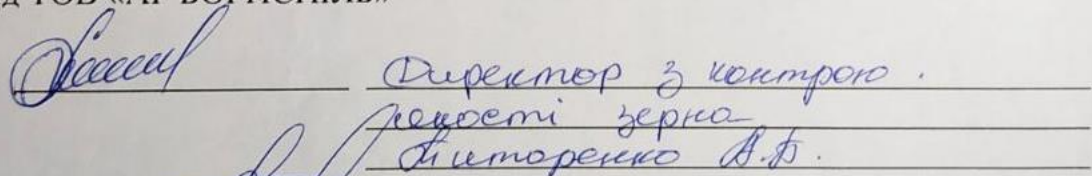 Директор з контрою.
якості зерна
Титоренко А.Б.